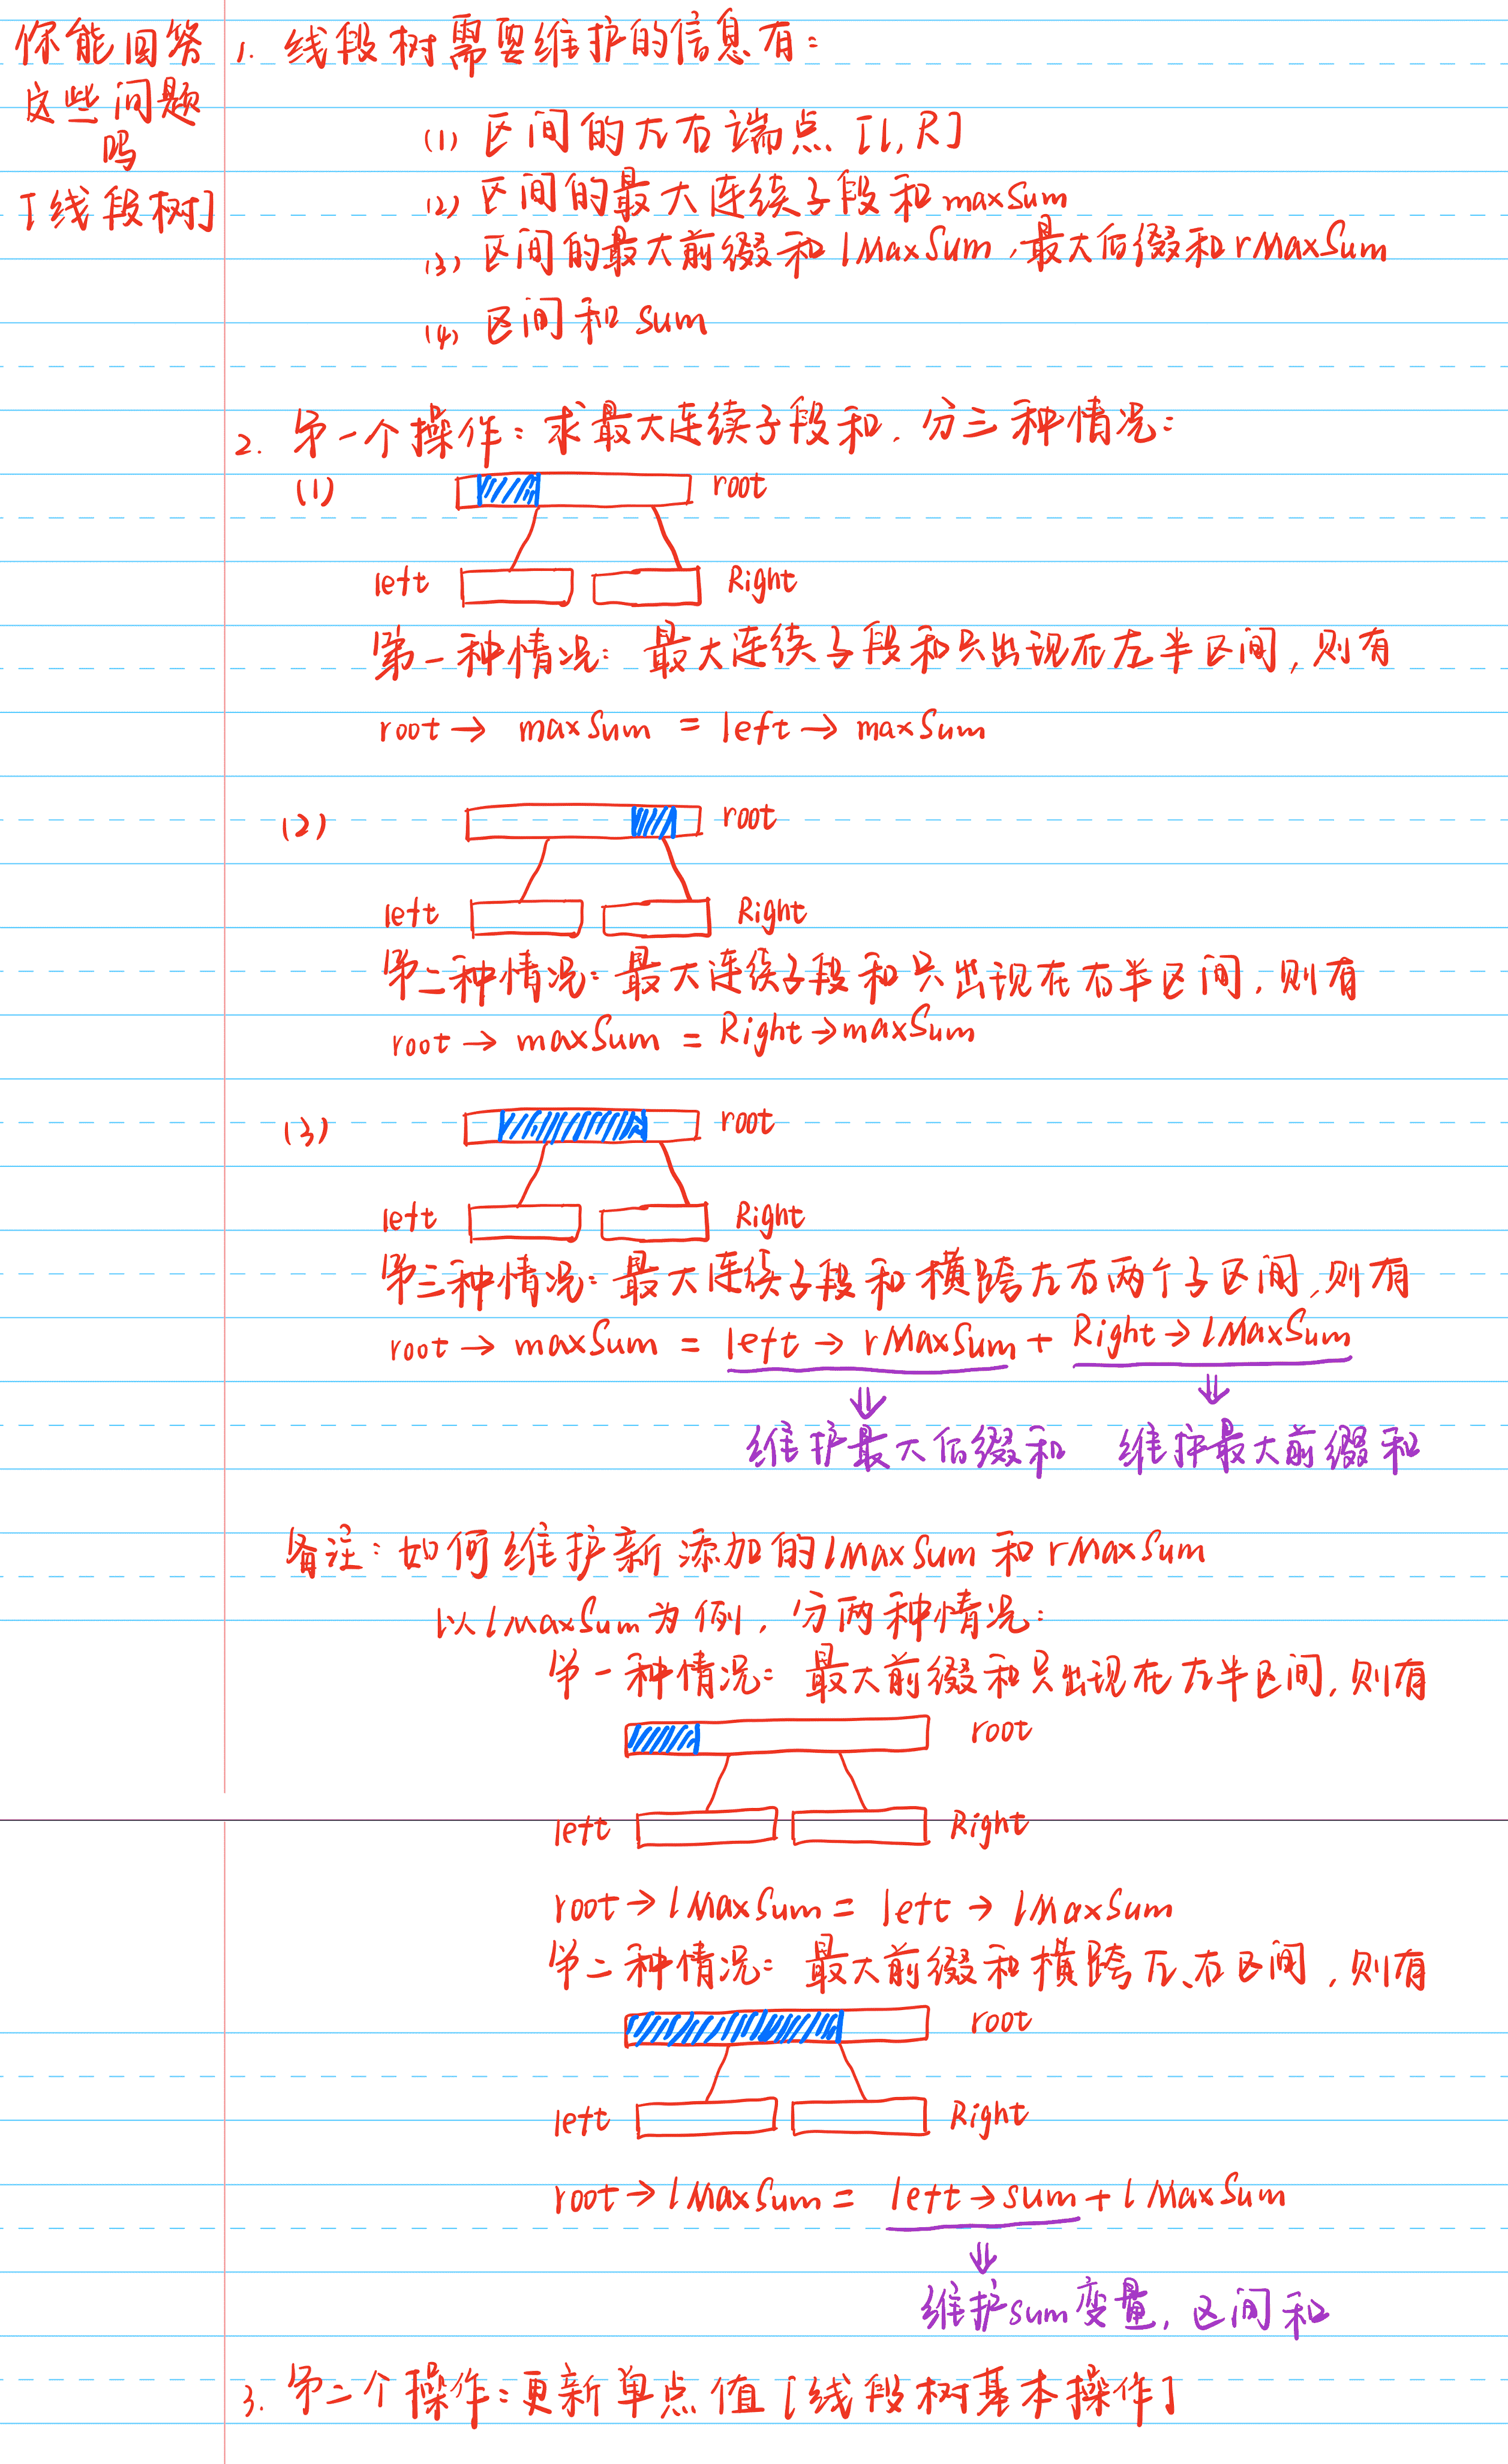 你能回答
这些问题
吗
[线段树]
1. 线段树需要维护的信息有:
(1) 区间的左右端点 [l, R]
(2) 区间的最大连续子段和 maxSum
(3) 区间的最大前缀和 lMaxSum, 最大后缀和 rMaxSum
(4) 区间和 sum
2. 第一个操作: 求最大连续子段和, 分三种情况:
(1) root
left Right
第一种情况: 最大连续子段和只出现在左半区间, 则有
root → maxSum = left → maxSum
(2) root
left Right
第二种情况: 最大连续子段和只出现在右半区间, 则有
root → maxSum = Right → maxSum
(3) root
left Right
第三种情况: 最大连续子段和横跨左右两个子区间, 则有
root → maxSum = left → rMaxSum + Right → lMaxSum
⇓ ⇓
维护最大后缀和 维护最大前缀和
备注: 如何维护新添加的 lMaxSum 和 rMaxSum
以 lMaxSum 为例, 分两种情况:
第一种情况: 最大前缀和只出现在左半区间, 则有
root
left Right
root → lMaxSum = left → lMaxSum
第二种情况: 最大前缀和横跨左、右区间, 则有
root
left Right
root → lMaxSum = left → sum + lMaxSum
⇓
维护sum变量, 区间和
3. 第二个操作: 更新单点值 [线段树基本操作]